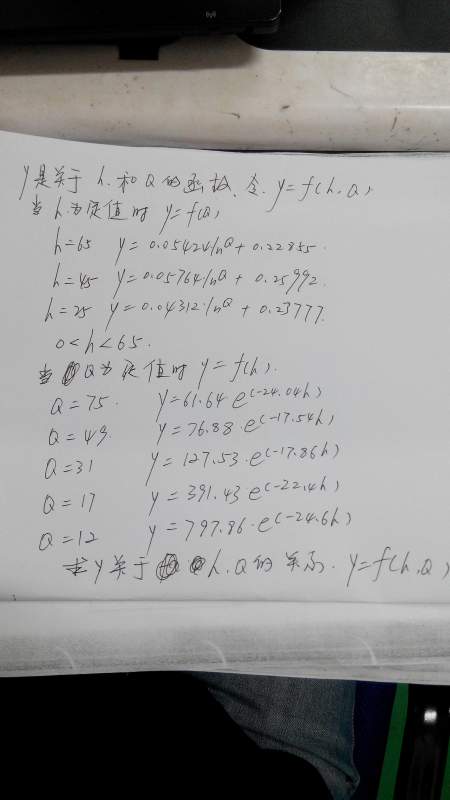 y是关于 h.和Q的函数、令.y=f(h,Q),
当h.为定值时 y=f(Q),
h=65 y=0.05424lnQ+0.22855.
h=45 y=0.05764lnQ+0.25992.
h=25 y=0.04312lnQ+0.23777.
0<h<65.
当Q为定值时y=f(h).
Q=75. y=61.64e(-24.04h)
Q=49. y=76.88·e(-17.54h)
Q=31 y=127.53·e(-17.86h)
Q=17 y=391.43e(-22.4h)
Q=12 y=797.86·e(-24.6h)
求y关于h.Q的关系.y=f(h,Q),